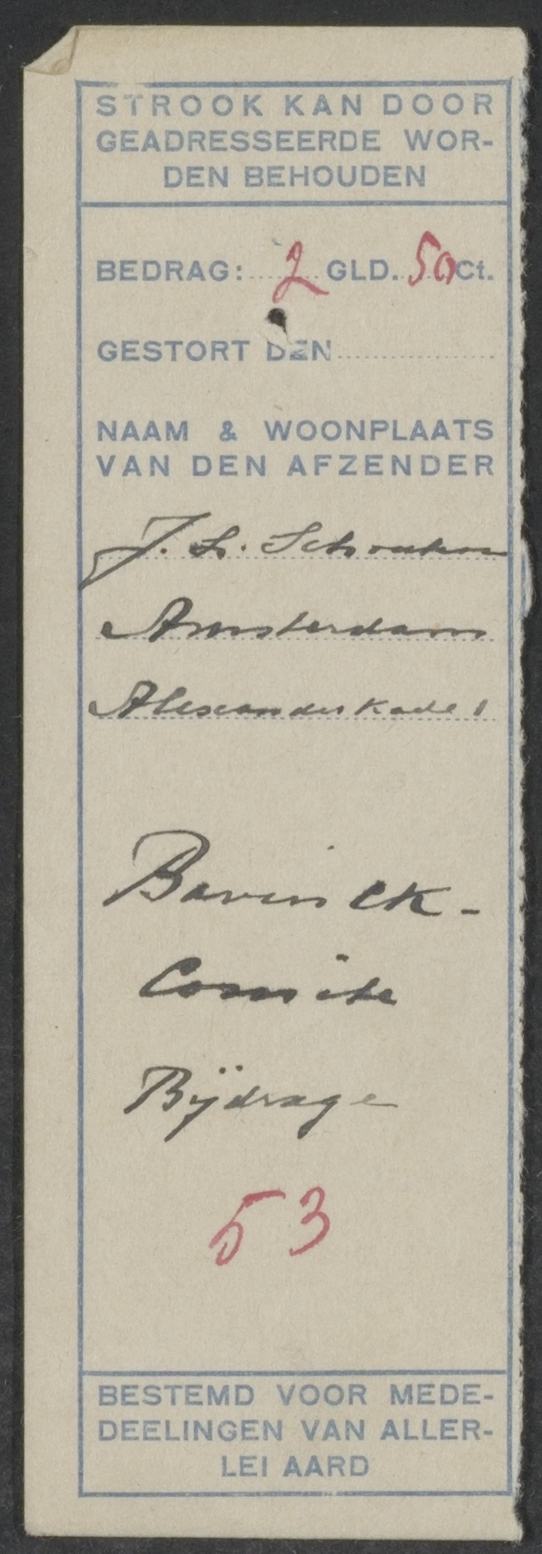 STROOK KAN DOOR
GEADRESSEERDE WOR-
DEN BEHOUDEN
BEDRAG: 2 GLD. 50 Ct.
GESTORT DEN
NAAM & WOONPLAATS
VAN DEN AFZENDER
J. L. Schouten
Amsterdam
Alexanderkade 1
Bavinck-
Comite
Bijdrage
53
BESTEMD VOOR MEDE-
DEELINGEN VAN ALLER-
LEI AARD